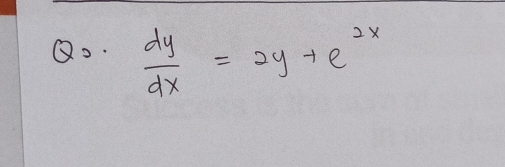 Q2. dy/dx = 2y + e^{2x}